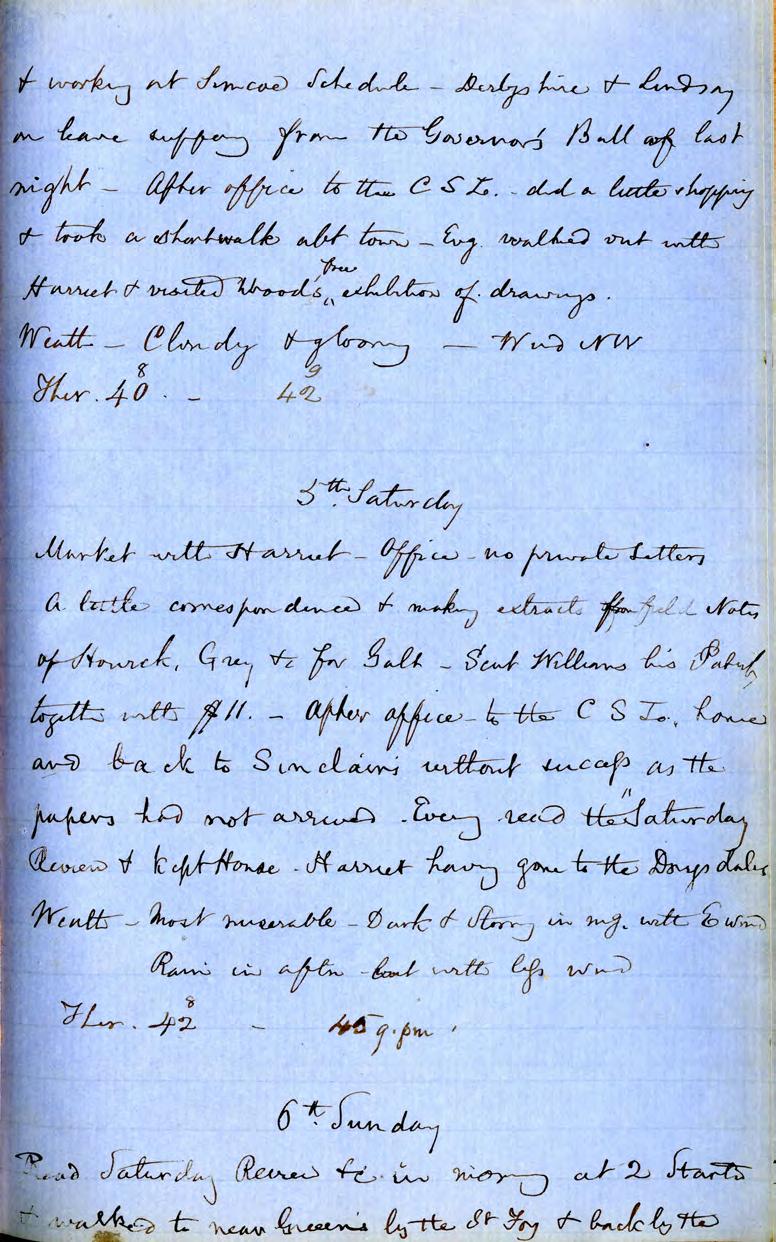 & working at Simcoe Schedule – Derbyshire & Lindsay
on leave suffering from the Governor's Ball of last
night – After office to the C S Lo. – did a little shopping
& took a short walk abt town – Evg. walked out with
Harriet & visited Wood's free exhibition of drawings.
Weath – Cloudy & gloomy – Wind NW
Ther. 40 8 – 42 9
5th Saturday
Market with Harriet – Office – no private Letters
A little correspondence & making extracts from field Notes
of Hawick, Grey &c for Galt – Sent Williams his Patent,
together with $11. – After office – to the C S Lo., home
and back to Sinclair's without success as the
papers had not arrived. Eveng read the "Saturday
Review & kept House – Harriet having gone to the Drysdales
Weath – Most miserable – Dark & Stormy in mg. with E wind
Rain in aftn – but with less wind
Ther. 42 8 – 45 9 pm
6th Sunday
Read Saturday Review &c in morng at 2 Started
& walked to near Green's by the St Foy & back by the